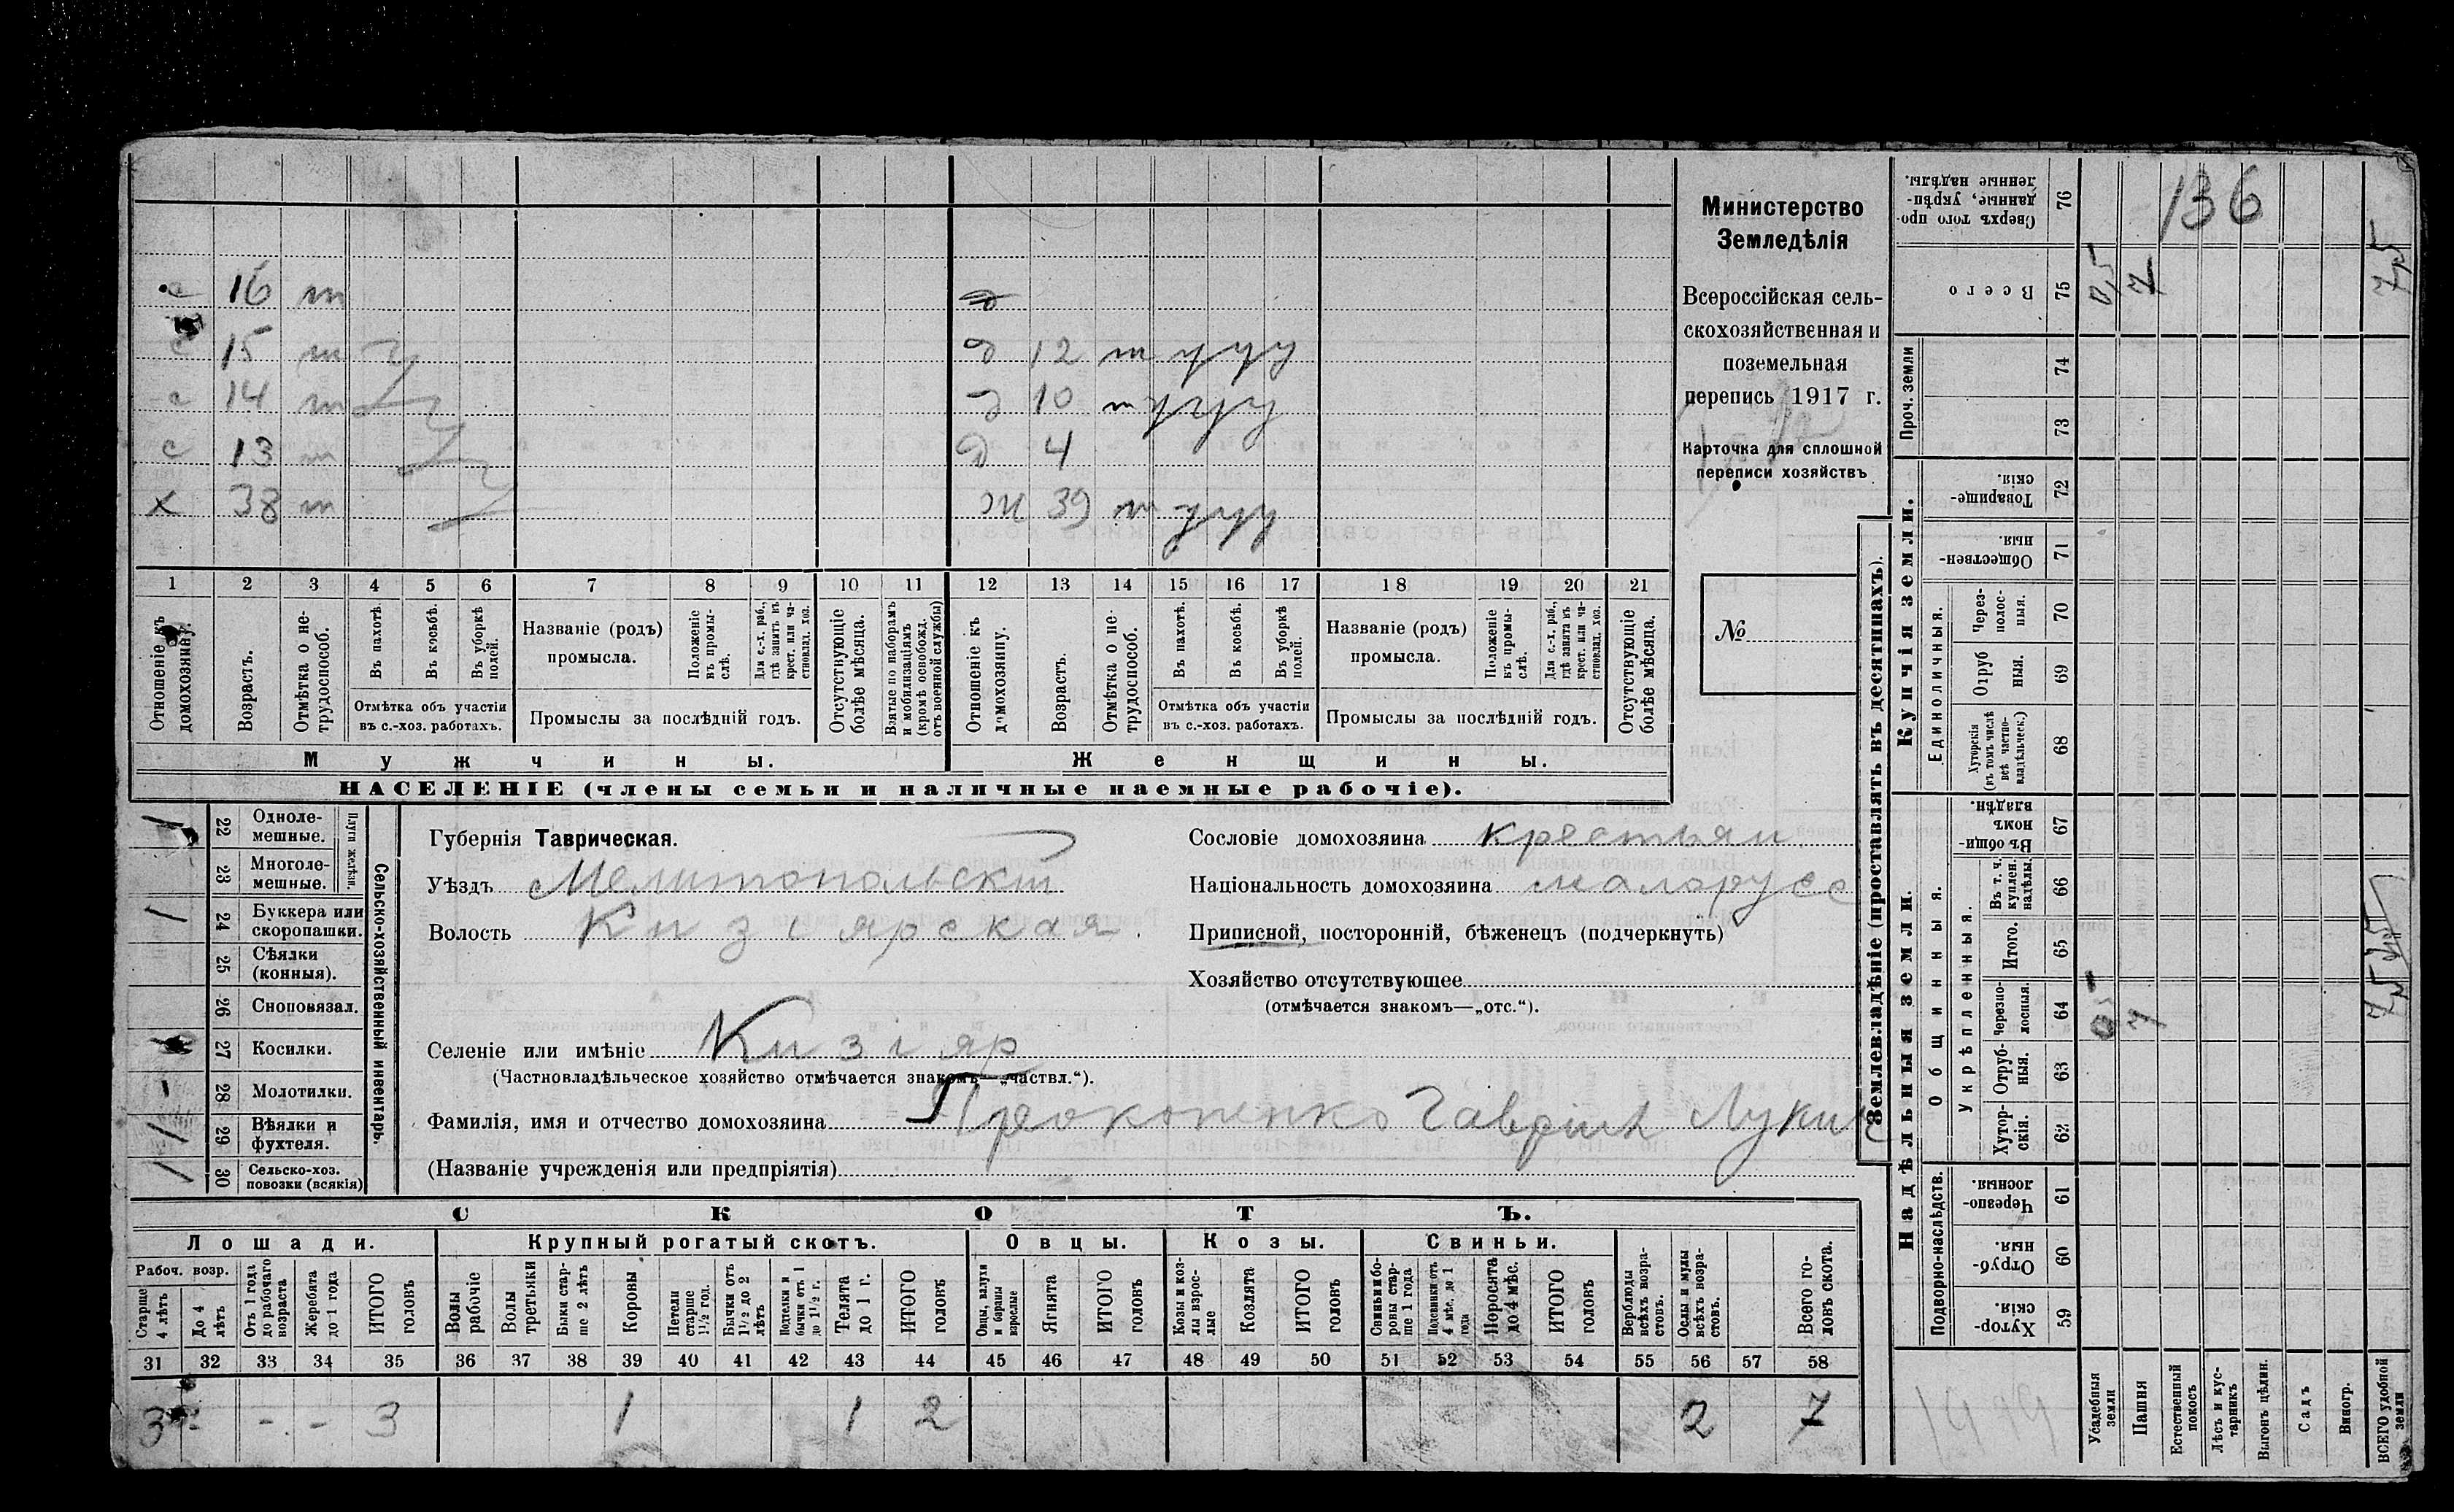 с 16 т
с 15 т
с 14 т
с 13 т
х 38 т
д
д 12 т у у у
д 10 т у у у
д 4
ж 39 т у у у
1 2 3 4 5 6 7 8 9 10 11 12 13 14 15 16 17 18 19 20 21
Отношеніе къ домохозяину.
Возрастъ.
Отмѣтка о не-трудоспособ.
Въ пахотѣ.
Въ косьбѣ.
Въ уборкѣ полей.
Отмѣтка объ участіи въ с.-хоз. работахъ.
Названіе (родъ) промысла.
Положеніе въ промы-слѣ.
Для с.-х. раб., гдѣ занятъ въ крест. или ча-стновлад. хоз.
Промыслы за послѣдній годъ.
Отсутствующіе болѣе мѣсяца.
Взятые по наборамъ и мобилизаціямъ (кромѣ освобожд. отъ военной службы)
Отношеніе къ домохозяину.
Возрастъ.
Отмѣтка о не-трудоспособ.
Въ пахотѣ.
Въ косьбѣ.
Въ уборкѣ полей.
Отмѣтка объ участіи въ с.-хоз. работахъ.
Названіе (родъ) промысла.
Положеніе въ промы-слѣ.
Для с.-х. раб., гдѣ занята въ крест. или ча-стновлад. хоз.
Промыслы за послѣдній годъ.
Отсутствующіе болѣе мѣсяца.
Мужчины.
Женщины.
НАСЕЛЕНІЕ (члены семьи и наличные наемные рабочіе).
Министерство
Земледѣлія
Всероссійская сель-
скохозяйственная и
поземельная
перепись 1917 г.
Карточка для сплошной
переписи хозяйствъ
№
22 Одноле-мешные.
23 Многоле-мешные.
Плуги желѣзн.
24 Буккера или скоропашки.
25 Сѣялки (конныя).
26 Сноповязал.
27 Косилки.
28 Молотилки.
29 Вѣялки и фухтеля.
30 Сельско-хоз. повозки (всякія)
Сельско-хозяйственный инвентарь.
Губернія Таврическая.
Уѣздъ Мелитопольскій
Волость Кизіярская
Селеніе или имѣніе Кизіяр
(Частновладѣльческое хозяйство отмѣчается знакомъ—„частвл.“).
Фамилія, имя и отчество домохозяина Прокопенко Гавріил Лукич
(Названіе учрежденія или предпріятія)
Сословіе домохозяина крестьян
Національность домохозяина малорусс
Приписной, посторонній, бѣженецъ (подчеркнуть)
Хозяйство отсутствующее
(отмѣчается знакомъ—„отс.“).
СКОТЪ.
Лошади. Крупный рогатый скотъ. Овцы. Козы. Свиньи.
Рабоч. возр.
Старше 4 лѣтъ
До 4 лѣтъ
Отъ 1 года до рабочаго возраста
Жеребята до 1 года
ИТОГО головъ
Волы рабочіе
Волы третьяки
Быки стар-ше 2 лѣтъ
Коровы
Нетели старше 1½ год.
Бычки отъ 1½ до 2 лѣтъ
Подтелки и бычки отъ 1 до 1½ г.
Телята до 1 г.
ИТОГО головъ
Овцы, валухи и бараны взрослые
Ягнята
ИТОГО головъ
Козы и коз-лы взрос-лые
Козлята
ИТОГО головъ
Свиньи и бо-ровы стар-ше 1 года
Подсвинки отъ 4 мѣс. до 1 года
Поросята до 4 мѣс.
ИТОГО головъ
Верблюды всѣхъ возра-стовъ.
Ослы и мулы всѣхъ возра-стовъ.
Всего го-ловъ скота.
31 32 33 34 35 36 37 38 39 40 41 42 43 44 45 46 47 48 49 50 51 52 53 54 55 56 57 58
3 - - 3 1 1 2 2 7
Землевладѣніе (проставлять въ десятинахъ).
Надѣльныя земли.
Купчія земли.
Проч. земли
Подворно-наслѣдств.
Общинныя.
Укрѣпленныя.
Единоличныя.
Сверхъ того про-данные, укрѣп-ленные надѣлы. 76
Всего 75
74
73
Товарище-скія. 72
Обществен-ныя. 71
Через-полос-ныя. 70
Отруб-ныя. 69
Хуторскія (въ томъ числѣ всѣ частно-владѣльческ.) 68
Въ общи-номъ владѣн. 67
Въ т. ч. куплен. надѣлы. 66
Итого. 65
Черезпо-лосныя. 64
Отруб-ныя. 63
Хутор-скія. 62
Черезпо-лосныя. 61
Отруб-ныя. 60
Хутор-скія. 59
Усадебныя земли
Пашня
Естественный покосъ
Лѣсъ и кус-тарникъ
Выгонъ цѣлин.
Садъ
Виногр.
ВСЕГО удобной земли
136
0,5 7 7,5
7